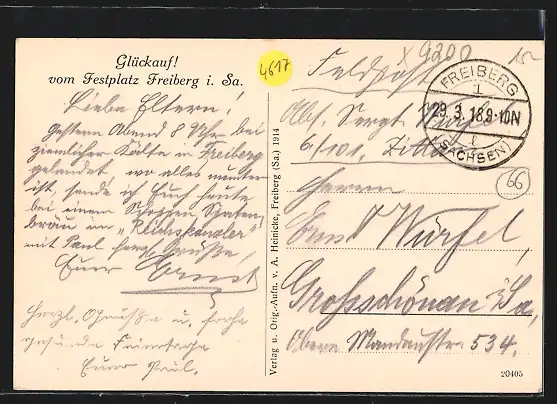 Glückauf!
vom Festplatz Freiberg i. Sa.
4617
Liebe Eltern!
Gestern Abend 8 Uhr bei
ziemlicher Kälte in Freiberg
gelandet, wo alles munter
ist, sende ich Euch heute
bei einem Schoppen
bräu im „Reichskanzler"
mit Paul herzl. Grüße,
Euer Ernst
Herzl. Grüße u. frohe
gesunde Feiertage
Euer Paul.
Verlag u. Orig.-Aufn. v. A. Heinicke, Freiberg (Sa.) 1914
Feldpost
x 9200
FREIBERG
1
29.3.18.9-10N
(SACHSEN)
Abs. Sergt. Würfel
6/101, Zittau
66
Herrn
Ernst Würfel,
Grossschönau i. Sa,
Obere Mandaustr 534.
20405